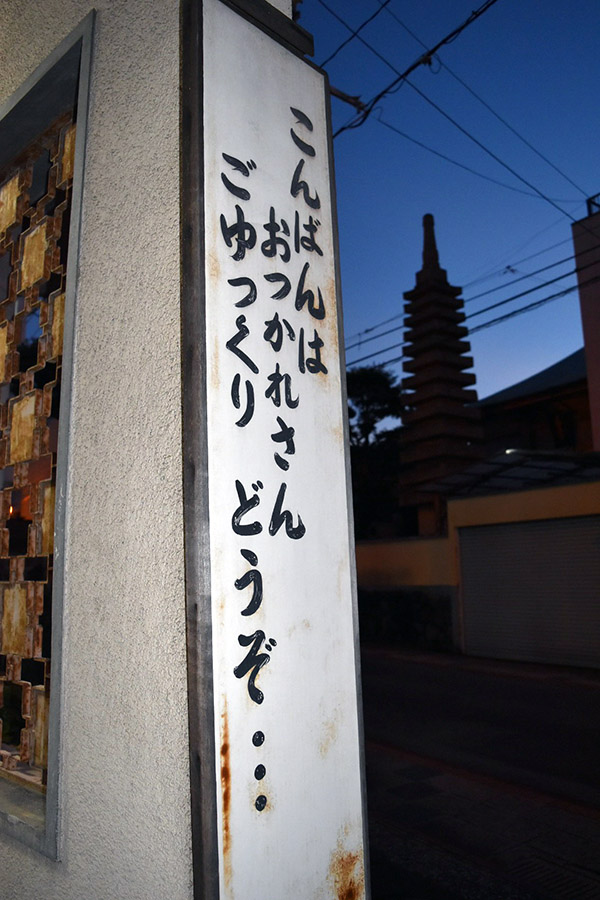 こんばんは
おつかれさん
ごゆっくり どうぞ・・・